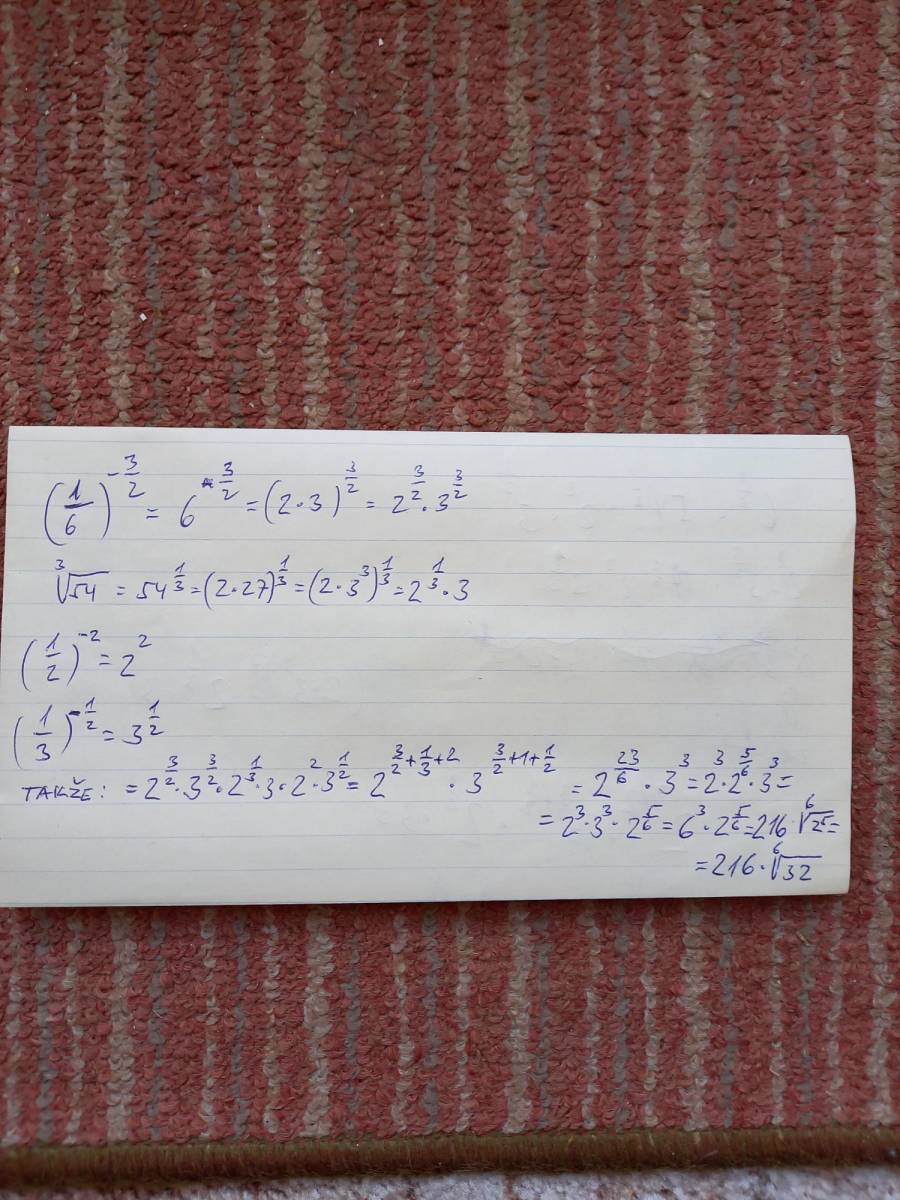 (1/6)^(-3/2) = 6^(3/2) = (2·3)^(3/2) = 2^(3/2)·3^(3/2)
∛54 = 54^(1/3) = (2·27)^(1/3) = (2·3^3)^(1/3) = 2^(1/3)·3
(1/2)^(-2) = 2^2
(1/3)^(-1/2) = 3^(1/2)
TAKŽE: = 2^(3/2)·3^(3/2)·2^(1/3)·3·2^2·3^(1/2) = 2^(3/2+1/3+2)·3^(3/2+1+1/2) = 2^(23/6)·3^3 = 2^3·2^(5/6)·3^3 =
= 2^3·3^3·2^(5/6) = 6^3·2^(5/6) = 216·⁶√2^5 =
= 216·⁶√32